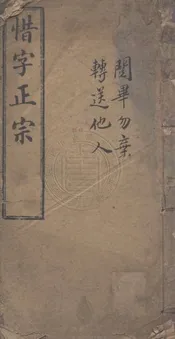 惜字正宗
閱畢勿棄
轉送他人